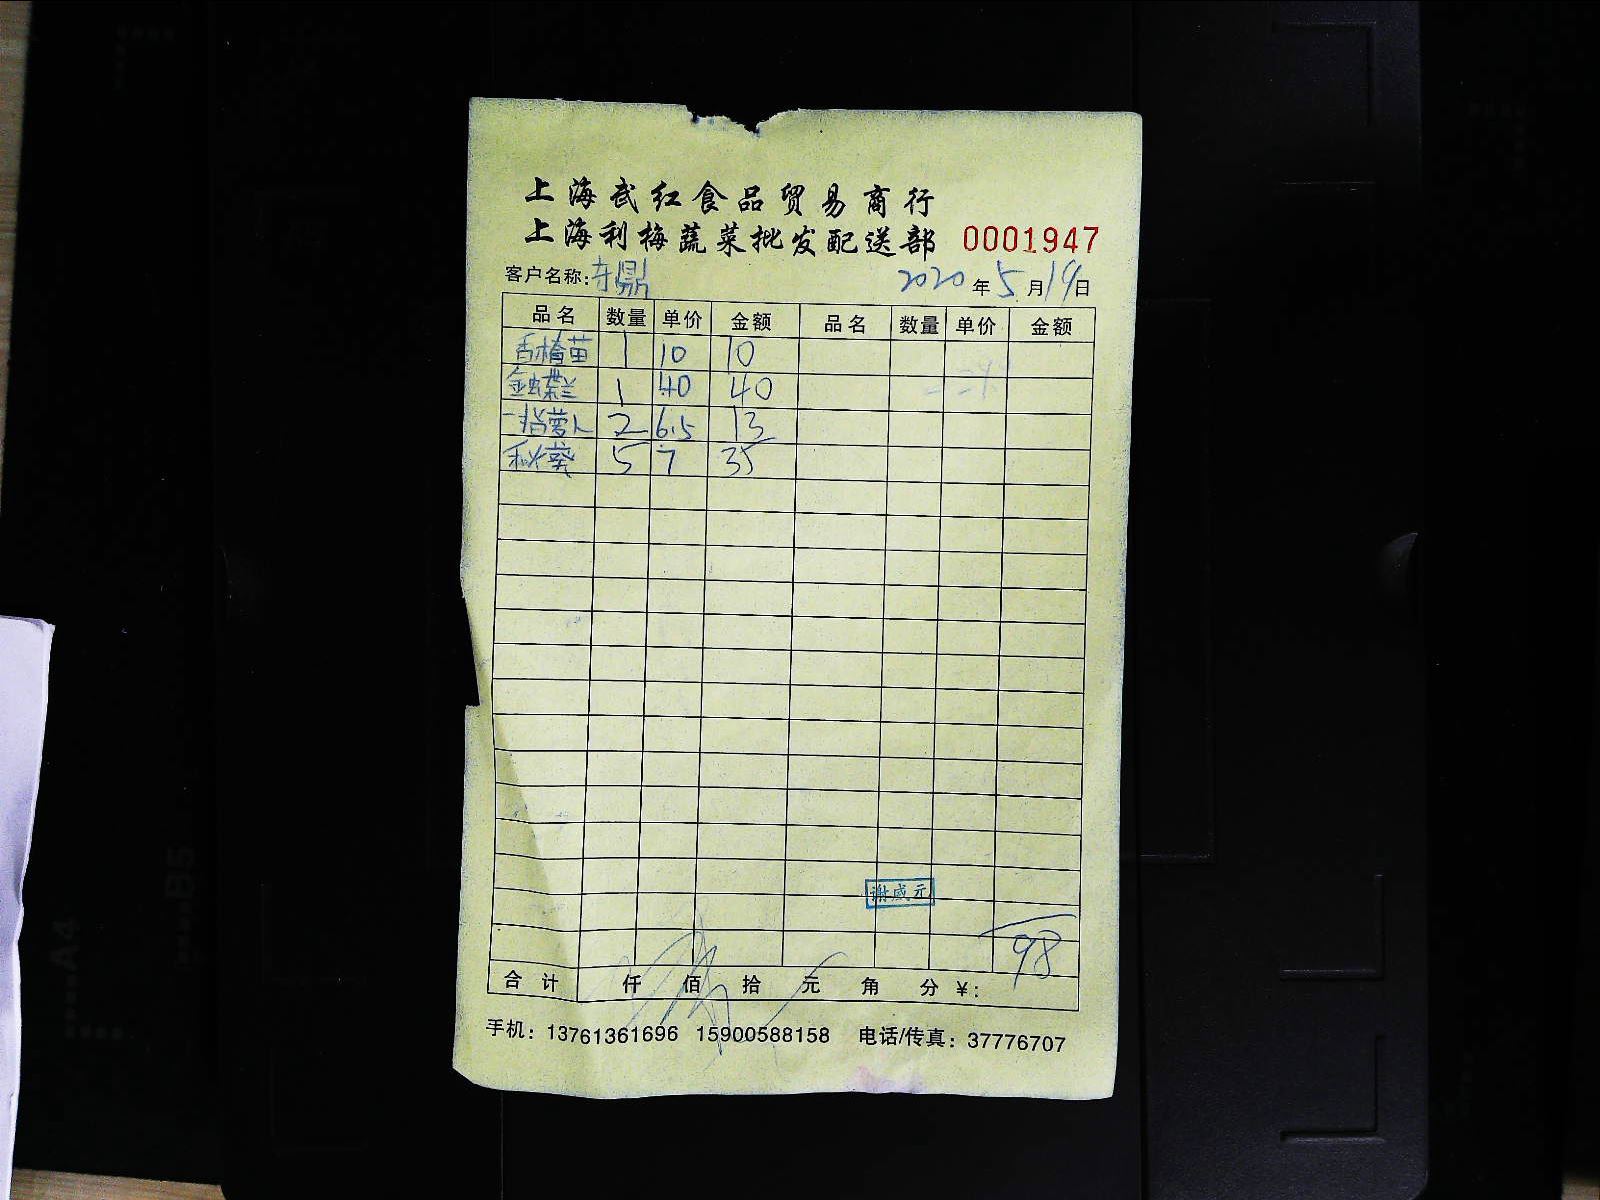 上海武红食品贸易商行
上海利梅蔬菜批发配送部 0001947
客户名称: 鼎 2020年5月19日
品名 数量 单价 金额 品名 数量 单价 金额
香椿苗 1 10 10
金蝶兰 1 40 40
2 6.5 13
秋葵 5 7 35
谢成元
98
合计 仟 佰 拾 元 角 分 ¥:
手机: 13761361696 15900588158 电话/传真: 37776707
A4
B5